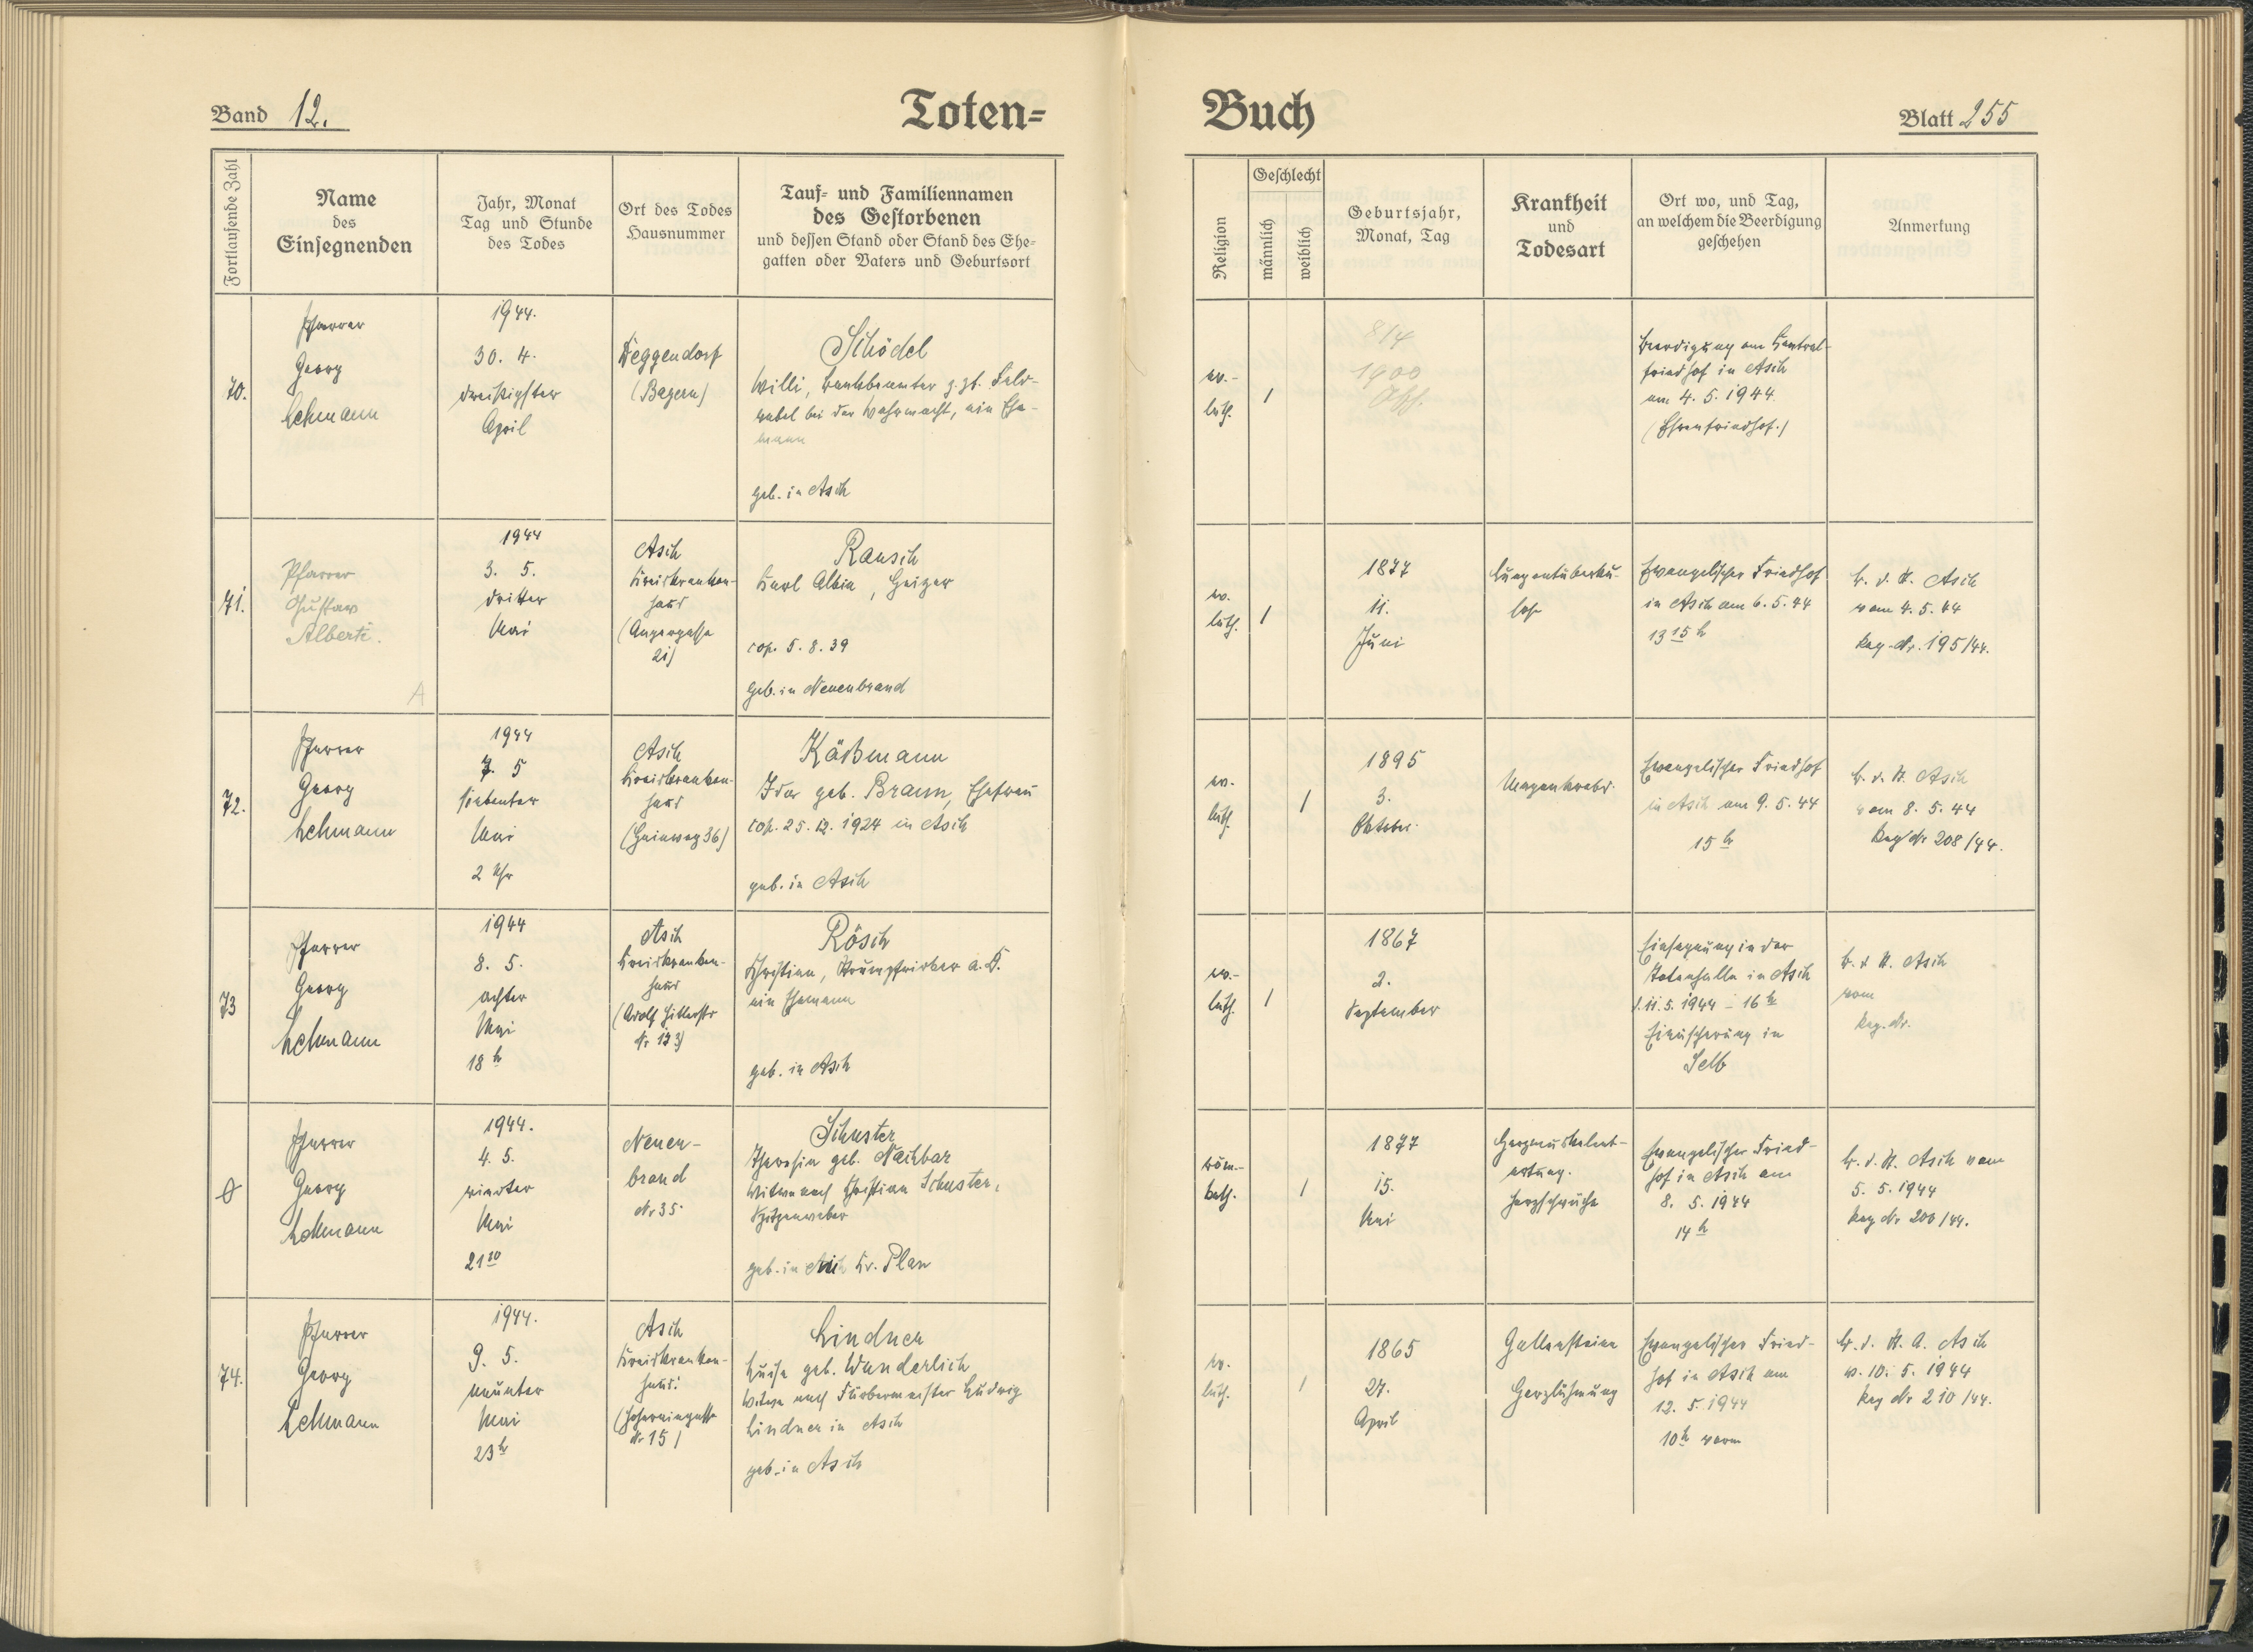 Band 12.
Toten=
Fortlaufende Zahl
Name
des
Einsegnenden
Jahr, Monat
Tag und Stunde
des Todes
Ort des Todes
Hausnummer
Tauf= und Familiennamen
des Gestorbenen
und dessen Stand oder Stand des Ehe=
gatten oder Vaters und Geburtsort
70.
Pfarrer
Georg
Lehmann
1944.
30. 4.
dreißigster
April
Deggendorf
(Bayern)
Schödel
Willi, Bankbeamter z. Zt. Feld-
webel bei der Wehrmacht, ein Ehe-
mann
geb. in Asch
71.
Pfarrer
Gustav
Alberti.
A
1944
3. 5.
dritter
Mai
Asch
Kreiskranken-
haus
(Angergasse
21)
Rausch
Karl Albin, Geiger
cop. 5. 8. 39
geb. in Neuenbrand
72.
Pfarrer
Georg
Lehmann
1944
7. 5
siebenter
Mai
2 Uhr
Asch
Kreiskranken-
haus
(Hainweg 36)
Käßmann
Ida geb. Braun, Ehefrau
cop. 25. 12. 1924 in Asch
geb. in Asch
73
Pfarrer
Georg
Lehmann
1944
8. 5.
achter
Mai
18 h
Asch
Kreiskranken-
haus
(Adolf Hitlerstr
Nr 173)
Rösch
Christian, Strumpfwirker a. D.
ein Ehemann
geb. in Asch
0
Pfarrer
Georg
Lehmann
1944.
4. 5.
vierter
Mai
21 20
Neuen-
brand
Nr 35.
Schuster
Theresia geb. Nachbar
Witwe nach Christian Schuster,
Spitzenweber
geb. in Kr. Plan
74.
Pfarrer
Georg
Lehmann
1944.
9. 5.
neunter
Mai
23 h
Asch
Kreiskranken-
haus.
Nr 15)
Lindner
Luise geb. Wunderlich
Witwe nach Färbermeister Ludwig
Lindner in Asch
geb. in Asch
Buch
Blatt 255
Religion
Geschlecht
männlich
weiblich
Geburtsjahr,
Monat, Tag
Krankheit
und
Todesart
Ort wo, und Tag,
an welchem die Beerdigung
geschehen
Anmerkung
ev.-
luth.
1
8/4
1900
Beerdigung am Zentral-
friedhof in Asch
am 4. 5. 1944.
(Ehrenfriedhof.)
ev.
luth.
1
1877
11.
Juni
Lungentuberku-
lose
Evangelischer Friedhof
in Asch am 6. 5. 44
13 15 h
b. d. St. Asch
vom 4. 5. 44
Reg. Nr. 195/44.
ev.
luth.
1
1895
3.
Oktober.
Magenkrebs.
Evangelischer Friedhof
in Asch am 9. 5. 44
15 h
b. d. St. Asch
vom 8. 5. 44
Reg Nr 208/44.
ev.-
luth.
1
1867
2.
September
Einsegnung in der
Totenhalle in Asch
d. 11. 5. 1944 - 16 h
Einäscherung in
Selb
b. d. St. Asch
vom
Reg. Nr.
röm.-
kath.
1
1877
15.
Mai
Herzmuskelent-
artung.
Herzschwäche
Evangelischer Fried-
hof in Asch am
8. 5. 1944
14 h
b. d. St. Asch vom
5. 5. 1944
Reg Nr 200/44.
ev.
luth.
1
1865
27.
April
Gallensteine
Herzlähmung
Evangelischer Fried-
hof in Asch am
12. 5. 1944
10 h vorm
b. d. St. A. Asch
v. 10. 5. 1944
Reg Nr 210/44.